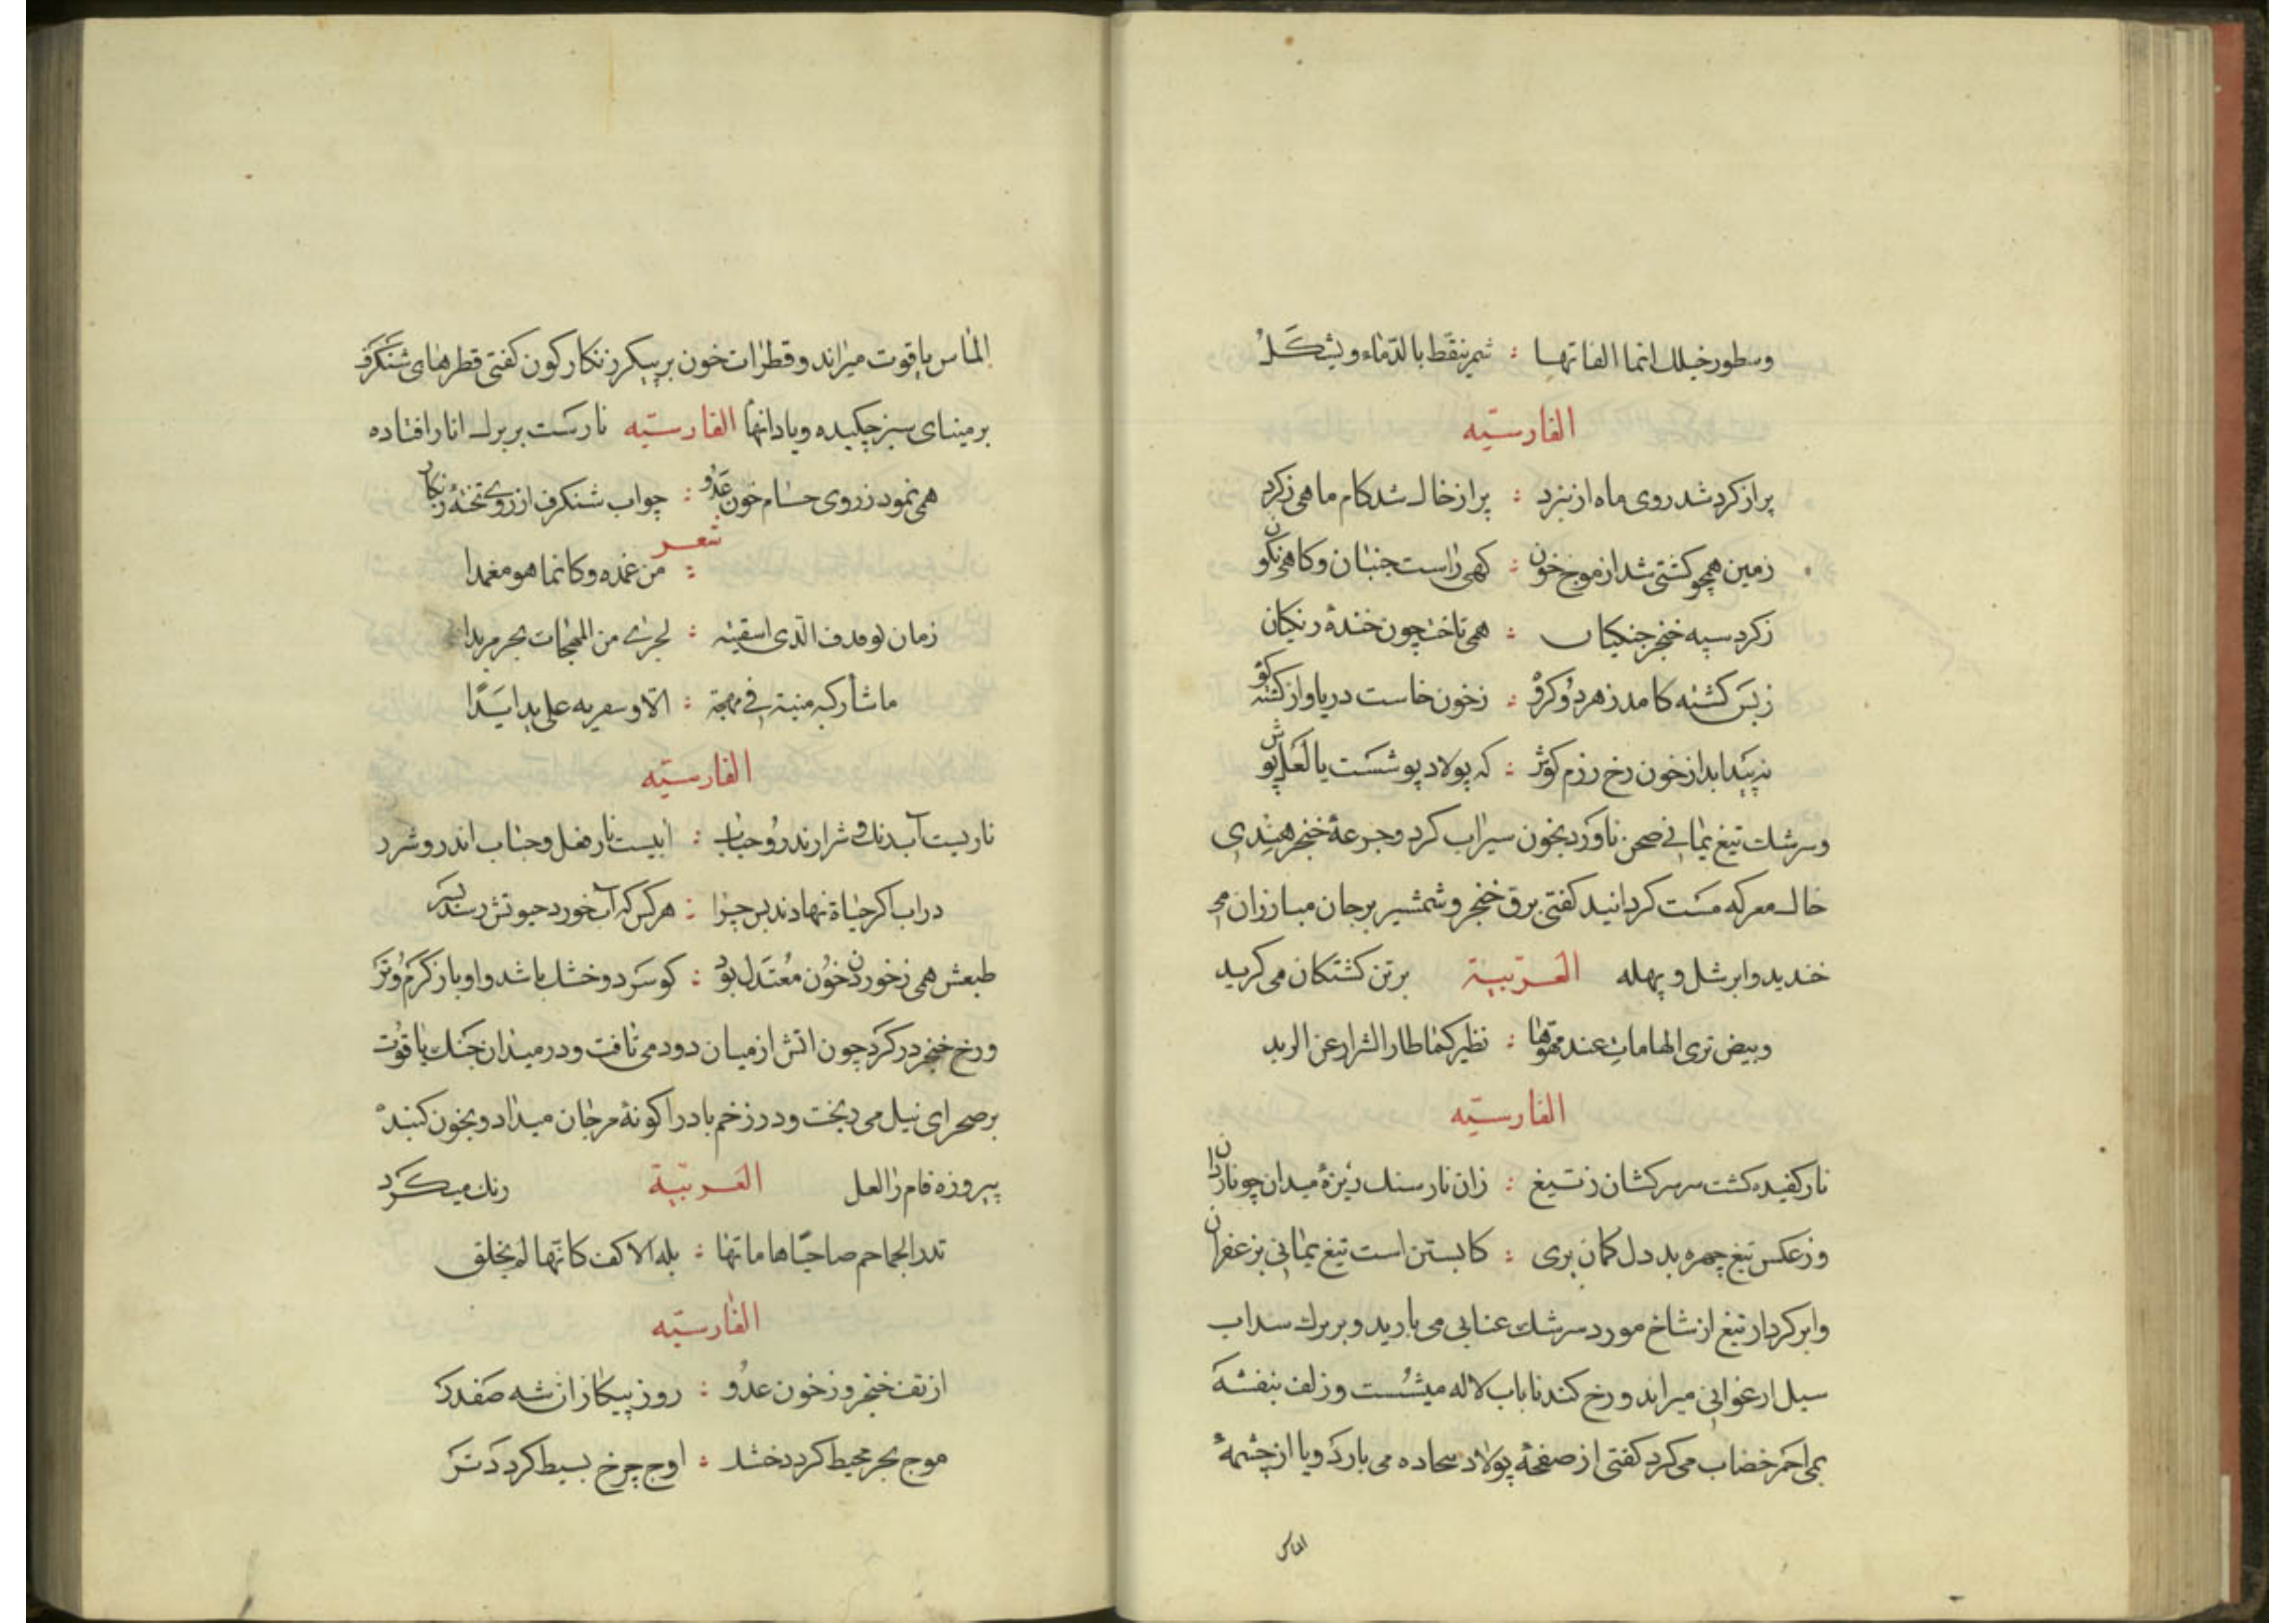 وسطور خیلك انما الفاتها : سمر ینقط بالدماء ویشکل
الفارسیّه
پر از کرد شد روی ماه از نبرد : پر از خاك شد کام ماهی زکرد
زمین همچو کشتی شد از موج خون : کهی راست جنبان و کاهی نکون
زکرد سپه خنجر جنکیان : همی تافت چون خنده زنکیان
ز بس کشته کامد ز هر دو کروه : ز خون خاست دریا و از کشته کوه
نه پیدا بد از خون رخ رزم کوش : که پولاد پوشست یا لعل پوش
وسرشك تیغ یمانی صحن ناورد بخون سیراب کرد وجرعهٔ خنجر هندی
خاك معرکه مست کردانید کفتی برق خنجر وشمشیر بر جان مبارزان می
خندید وابر شل وپهله العربیّة بر تن کشتکان می کرید
وبیض تری الهامات عند مهوّها : نظیر کما طار الشرار عن الزند
الفارسیّه
نار کفیده کشت سر سرکشان ز تیغ : زان نار سنك ریزهٔ میدان چو ناردان
وز عکس تیغ چهره بد دل کمان بری : کابستن است تیغ یمانی بزعفران
وابر کردار تیغ از شاخ مورد سرشك عنابی می بارید وبر برك سداب
سیل ارغوانی میراند ورخ کندنا باب لاله میشست وزلف بنفشه
بمی احمر خضاب می کرد کفتی از صفحهٔ پولاد بیجاده می بارد ویا از چشمهٔ
الماس
الماس یاقوت میراند وقطرات خون بر پیکر زنکار کون کفتی قطرهای شنکرف
بر مینای سبز چکیده ویا دانها الفارسیّه نارست بر برك انار افتاده
همی نمود ز روی حسام خون عدو : چو اب شنکرف از روی تختهٔ زنکار
شعر
: من غمده وکانما هو مغمدا
زمان لو قذف الذی اسقیته : لجری من المهجات بحر مزبدا
ما شارکته منیة فی مهجة : الا وشفرته علی یدها یدا
الفارسیّه
ناریست آب رنك و شرار اندرو حباب : ابیست نار فعل وحباب اندرو شرر
در اب اکر حیاة نهادند پس چرا : هر کس که آب خورد حیوتش رسد بسر
طبعش همی ز خوردن خون معتدل بود : کو سرد وخشك باشد واو باز کرم وتر
ورخ خنجر در کرد چون اتش از میان دود می تافت ودر میدان جنك یاقوت
بر صحرای نیل می ریخت ودر زخم باد را کونهٔ مرجان میداد وبخون کنبد
پیروزه فام را لعل العربیّة رنك میکرد
تذر الجماجم ضاحیا هاماتها : بله الاکف کانها لم تخلق
الفارسیّه
از تف خنجر وز خون عدو : روز پیکار ان شه صفدر
موج بحر محیط کردد خشك : اوج چرخ بسیط کردد تر